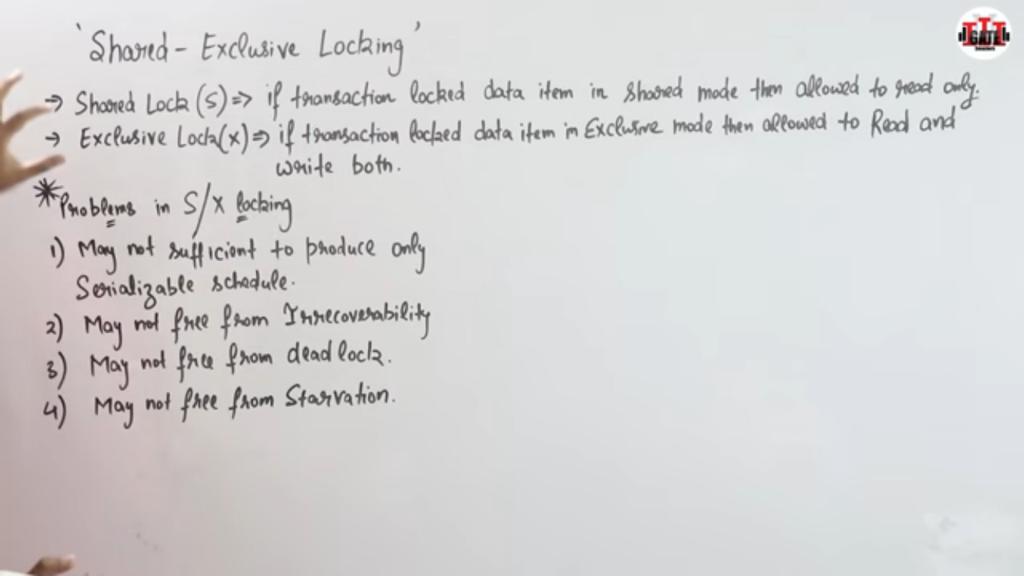 'Shared - Exclusive Locking'
→ Shared Lock (S) => if transaction locked data item in shared mode then allowed to read only.
→ Exclusive Lock(X) => if transaction locked data item in Exclusive mode then allowed to Read and
write both.
* Problems in S/X locking
1) May not sufficient to produce only
Serializable schedule.
2) May not free from Irrecoverability
3) May not free from deadlock.
4) May not free from Starvation.
GATE